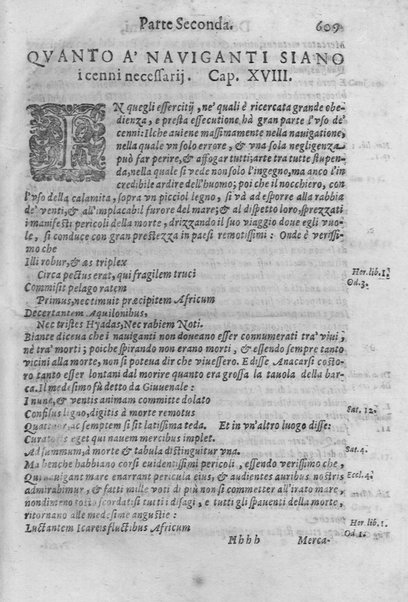 Parte Seconda. 609
QVANTO A' NAVIGANTI SIANO
i cenni necessarij. Cap. XVIII.
IN quegli essercitij, ne' quali è ricercata grande obe-
dienza, e presta essecutione, hà gran parte l'vso de'
cenni: Ilche auiene massinamente nella nauigatione,
nella quale vn solo errore, & vna sola negligenza
può far perire, & affogar tutti; arte tra tutte stupen-
da, nella quale si vede non solo l'ingegno, ma anco l'in
credibile ardire dell'huomo; poi che il nocchiero, con
l'vso della calamita, sopra vn picciol legno, si và ad esporre alla rabbia
de' venti, & all'implacabil furore del mare; & al dispetto loro, sprezzati
i manifesti pericoli della morte, drizzando il suo viaggio doue egli vuo-
le, si conduce con gran prestezza in paesi remotissimi: Onde è verissi-
mo che
Illi robur, & æs triplex
Circa pectus erat, qui fragilem truci Her. lib. 1.
Commisit pelago ratem Od. 3.
Primus, nec timuit præcipitem Africum
Decertantem Aquilonibus,
Nec tristes Hyadas, Nec rabiem Noti.
Biante diceua che i nauiganti non doueano esser connumerati tra' viui,
nè tra' morti; poiche spirando non erano morti, & essendo sempre tanto
vicini alla morte, non si poteua dir che viuessero. E disse Anacarsi costo-
ro tanto esser lontani dal morire quanto era grossa la tauola della bar-
ca. Il medesimo fù detto da Giuuenale:
I nunc, & ventis animam committe dolato
Confisus ligno, digitis à morte remotus Sat. 12.
Quattuor, ac septem si sit latissima teda. Et in vn'altro luogo disse:
Curatoris eget qui nauem mercibus implet.
Ad summum, à morte & tabula distinguitur vna. Sat. 4.
Ma benche habbiano corsi euidentissimi pericoli, essendo verissimo che,
Qui nauigant mare enarrant pericula eius, & audientes auribus nostris Eccl. 43.
admirabimur, & fatti mille voti di più non si commetter all'irato mare,
nondimeno tosto scordatisi tutti i disagi, e tutti gli spauenti della morte,
ritornano alle medesime angustie:
Luctantem Icareis fluctibus Africum Her. lib. 1.
Od. 1.
Hhhh Merca-